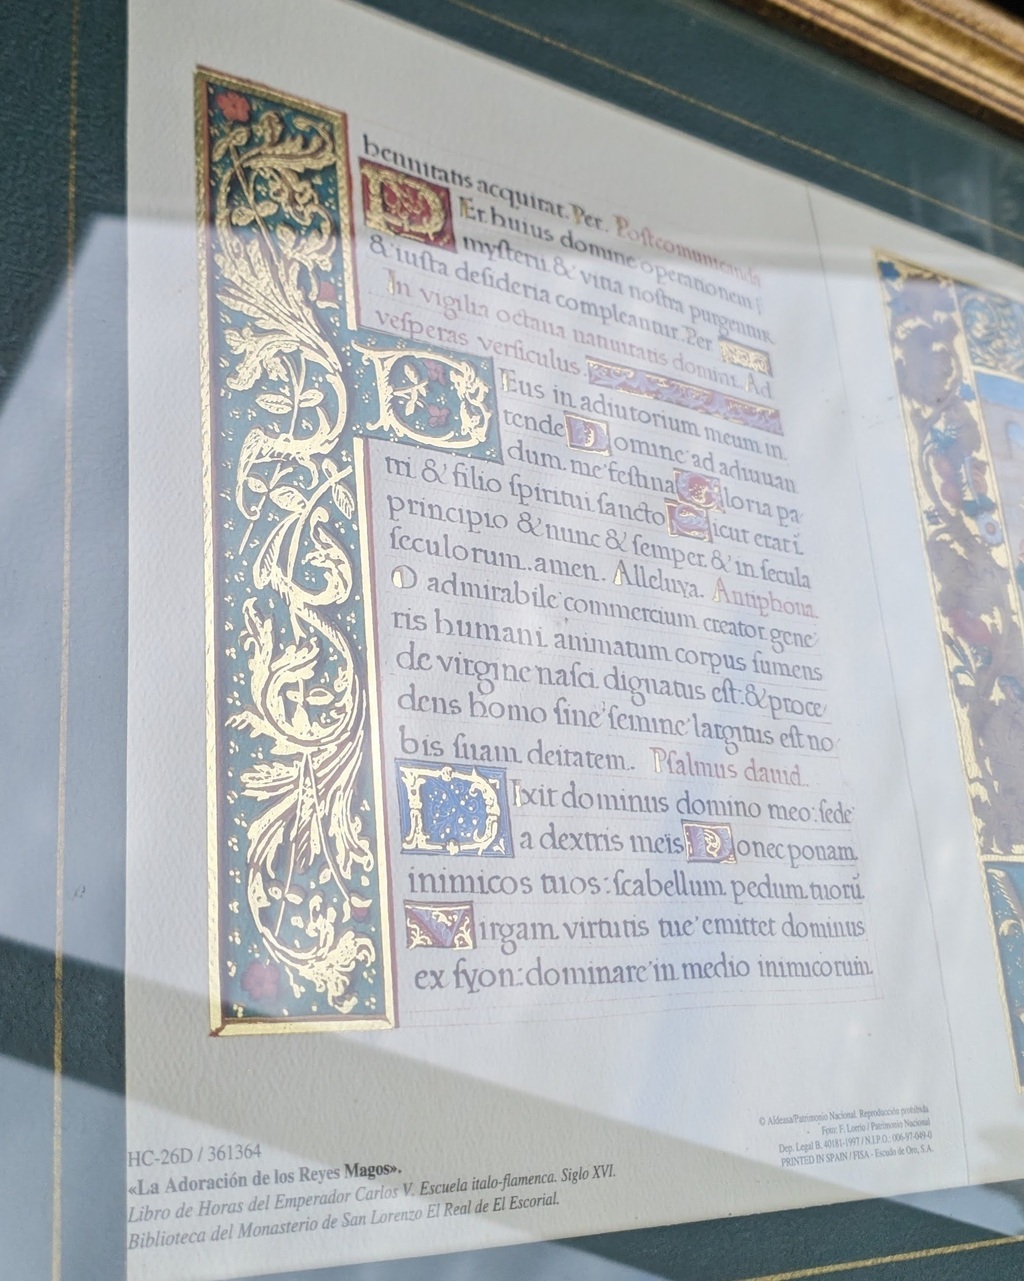 bennitatis acquirat. Per. Postcomunicanda
PEr huius domine operationem
mysterii & vitia nostra purgentur
& iusta desideria compleantur. Per
In vigilia octaua natiuitatis domini. Ad
vesperas versiculus.
DEus in adiutorium meum in
tende Domine ad adiuuan
dum me festina Gloria pa
tri & filio spiritui sancto Sicut erat ī
principio & nunc & semper & in secula
seculorum. amen. Alleluya. Antiphona
O admirabile commercium creator gene
ris humani animatum corpus sumens
de virgine nasci dignatus est: & proce
dens homo sine semine largitus est no
bis suam deitatem. Psalmus dauid.
DIxit dominus domino meo: sede
a dextris meis Donec ponam
inimicos tuos: scabellum pedum tuorū
Virgam virtutis tue emittet dominus
ex syon: dominare in medio inimicorum
HC-26D / 361364
«La Adoración de los Reyes Magos».
Libro de Horas del Emperador Carlos V. Escuela italo-flamenca. Siglo XVI.
Biblioteca del Monasterio de San Lorenzo El Real de El Escorial.
© Aldeasa/Patrimonio Nacional. Reproducción prohibida
Foto: F. Lorrio / Patrimonio Nacional
Dep. Legal B. 40181-1997 / N.I.P.O.: 006-97-049-0
PRINTED IN SPAIN / FISA - Escudo de Oro, S.A.